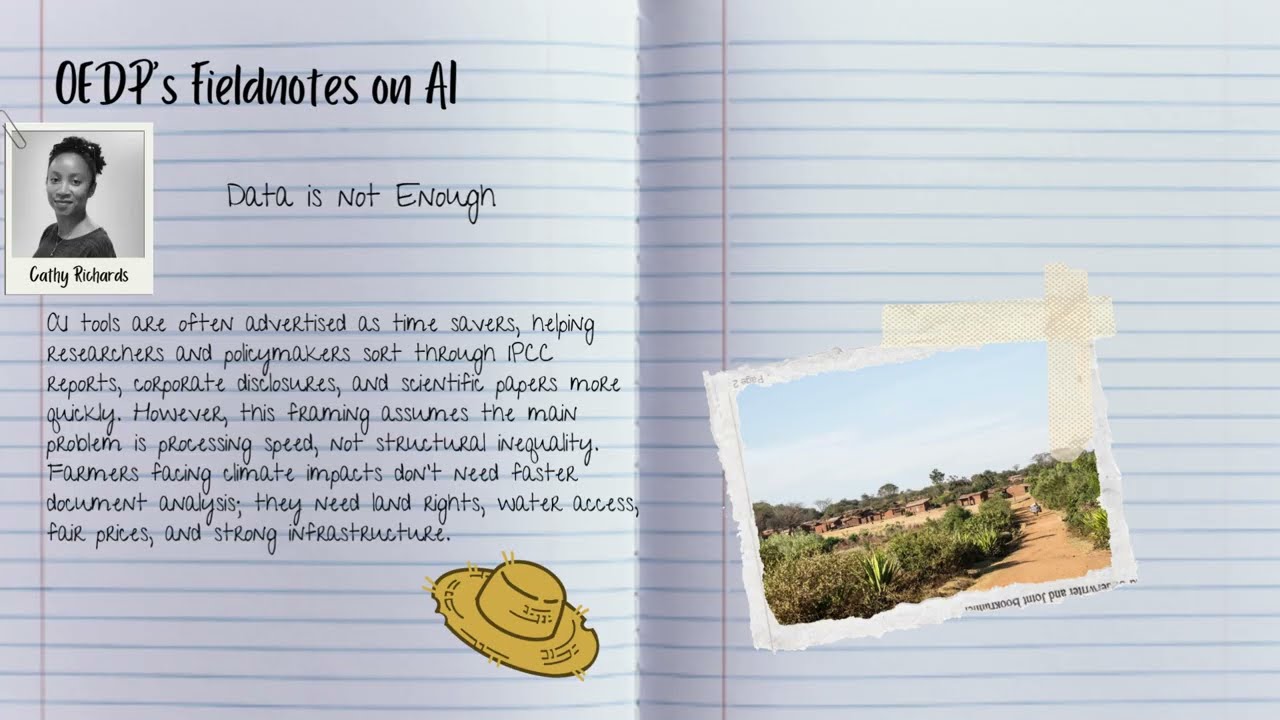 OEDP's Fieldnotes on AI
Cathy Richards
Data is not Enough
AI tools are often advertised as time savers, helping
researchers and policymakers sort through IPCC
reports, corporate disclosures, and scientific papers more
quickly. However, this framing assumes the main
problem is processing speed, not structural inequality.
Farmers facing climate impacts don't need faster
document analysis; they need land rights, water access,
fair prices, and strong infrastructure.
Page 2
and Joint